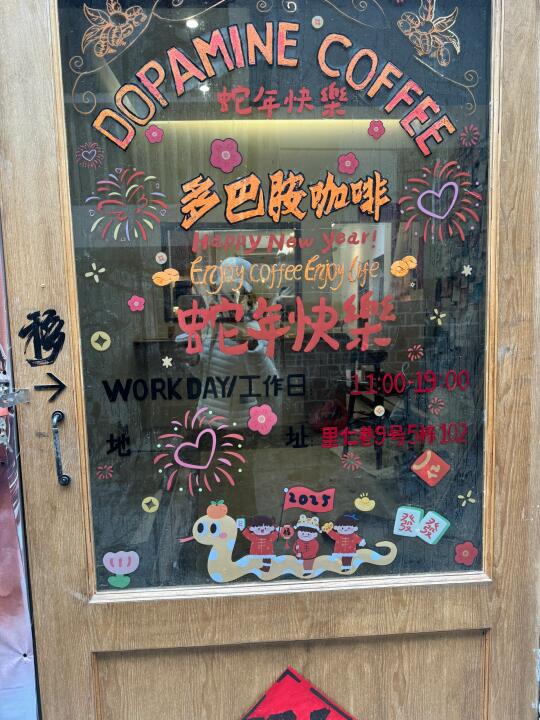 DOPAMINE COFFEE
蛇年快樂
多巴胺咖啡
Happy New Year!
Enjoy coffee Enjoy life
蛇年快樂
移
WORKDAY/工作日 11:00-19:00
地 址: 里仁巷9号5栋102
2025
發 發